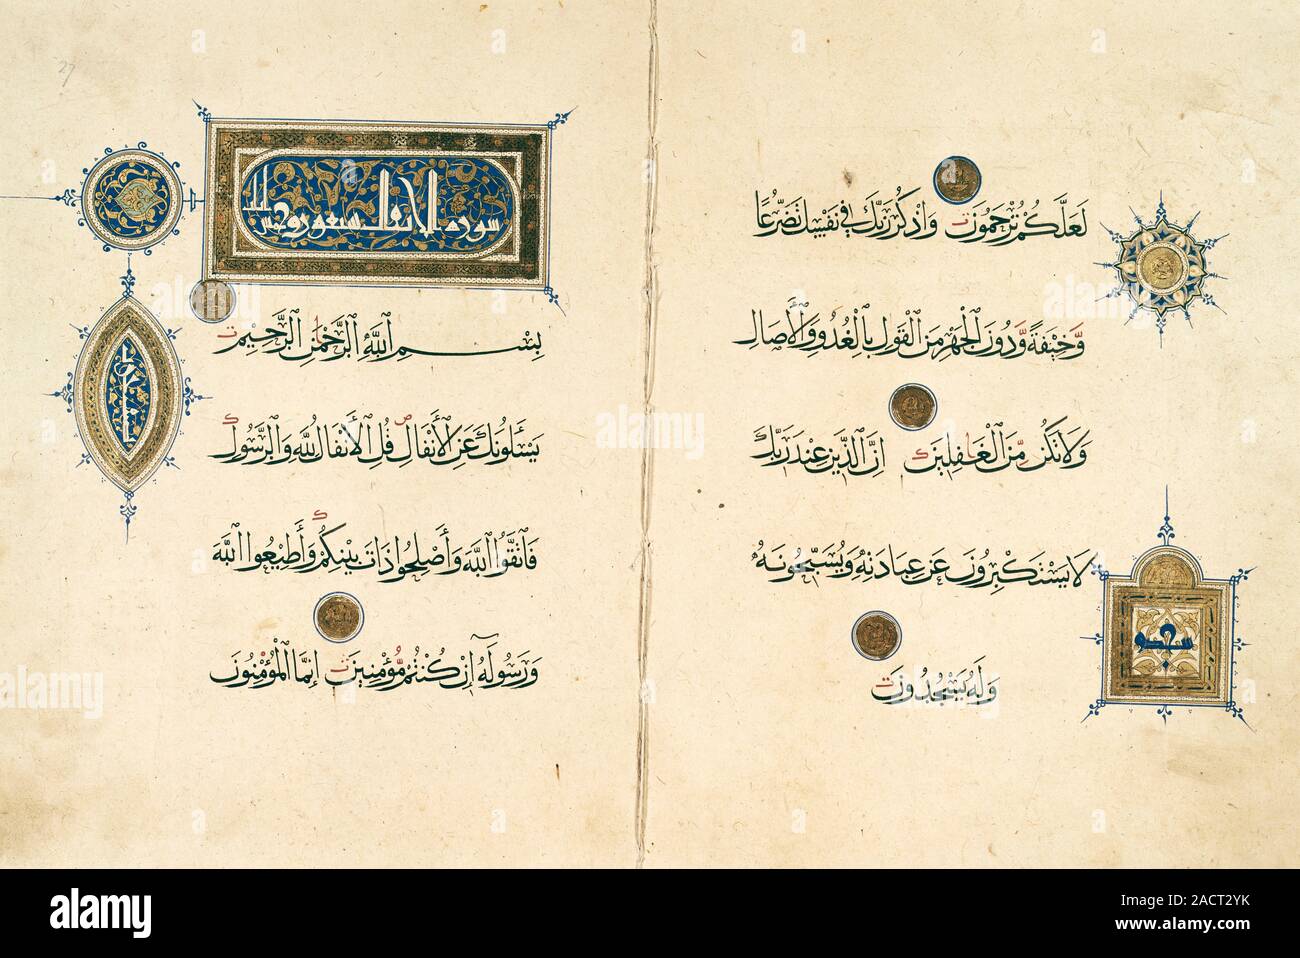 لَعَلَّكُمْ تُرْحَمُونَ وَاذْكُرْ رَبَّكَ فِي نَفْسِكَ تَضَرُّعًا
وَّخِيفَةً وَّدُونَ الْجَهْرِ مِنَ الْقَوْلِ بِالْغُدُوِّ وَالْأَصَالِ
وَلَا تَكُنْ مِّنَ الْغَافِلِينَ إِنَّ الَّذِينَ عِنْدَ رَبِّكَ
لَا يَسْتَكْبِرُونَ عَنْ عِبَادَتِهِ وَيُسَبِّحُونَهُ
وَلَهُ يَسْجُدُونَ
سوره الانفال سبعون و
بِسْمِ اللَّهِ الرَّحْمَٰنِ الرَّحِيمِ
يَسْأَلُونَكَ عَنِ الْأَنْفَالِ قُلِ الْأَنْفَالُ لِلَّهِ وَالرَّسُولِ
فَاتَّقُوا اللَّهَ وَأَصْلِحُوا ذَاتَ بَيْنِكُمْ وَأَطِيعُوا اللَّهَ
وَرَسُولَهُ إِنْ كُنْتُمْ مُّؤْمِنِينَ إِنَّمَا الْمُؤْمِنُونَ
27
alamy
Image ID: 2ACT2YK
www.alamy.com